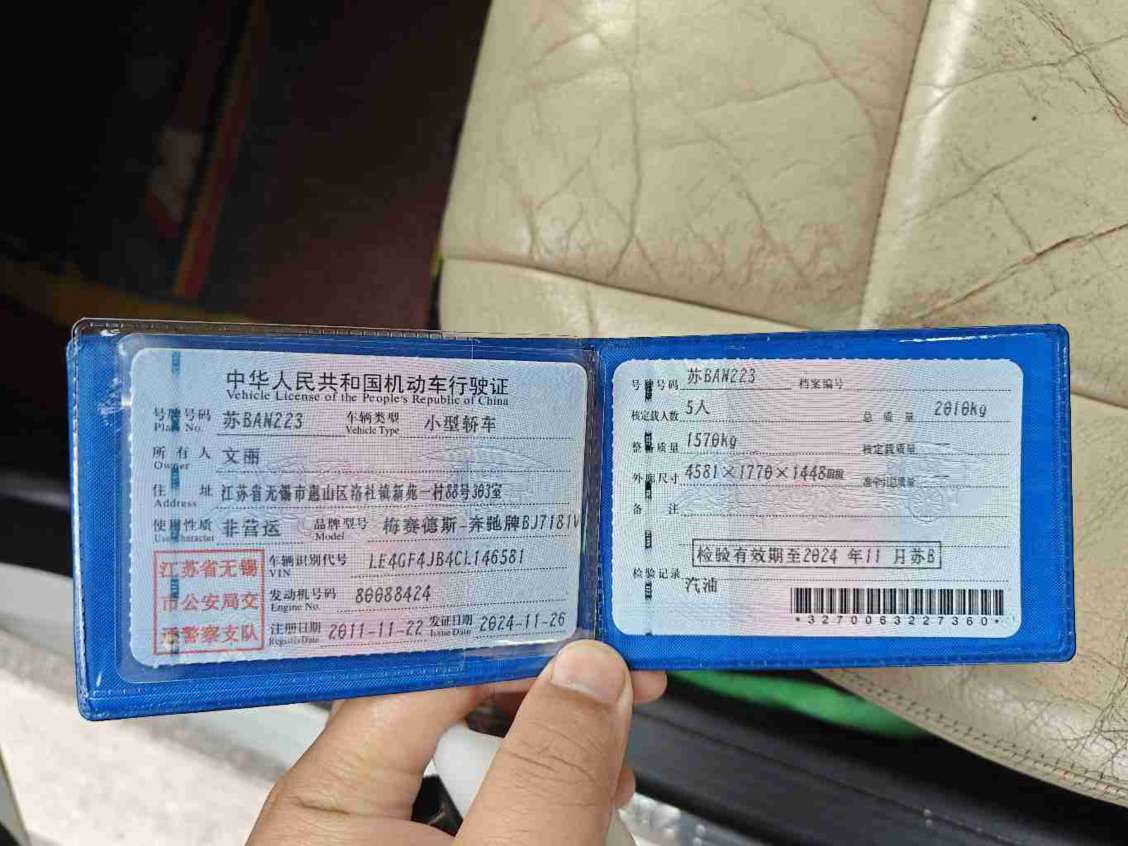 中华人民共和国机动车行驶证
Vehicle License of the People's Republic of China
号牌号码 苏BAN223 车辆类型 小型轿车
Plate No. Vehicle Type
所有人 文丽
Owner
住址 江苏省无锡市惠山区洛社镇新苑一村88号303室
Address
使用性质 非营运 品牌型号 梅赛德斯-奔驰牌BJ7181V
Use Character Model
江苏省无锡
市公安局交
通警察支队
车辆识别代号 LE4GF4JB4CL146581
VIN
发动机号码 80088424
Engine No.
注册日期 2011-11-22 发证日期 2024-11-26
Register Date Issue Date
号牌号码 苏BAN223 档案编号
核定载人数 5人 总质量 2010kg
整备质量 1570kg 核定载质量 --
外廓尺寸 4581×1770×1448mm 准牵引总质量 --
备注
检验有效期至2024 年11 月苏B
检验记录
汽油
*3270063227360*